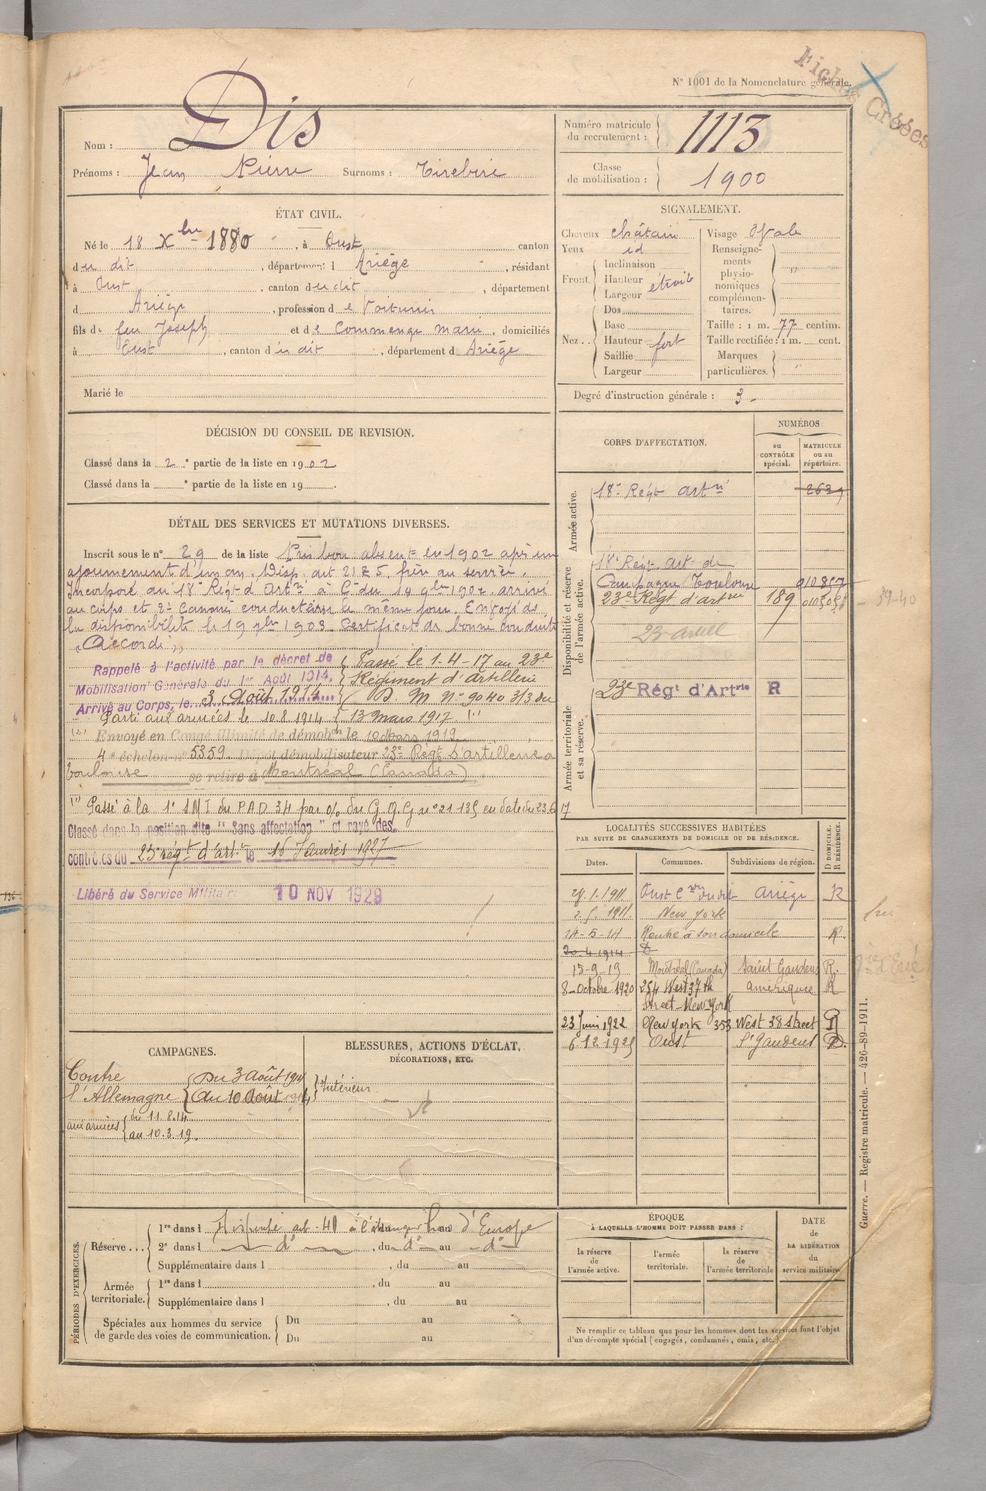 N° 1001 de la Nomenclature générale.
Fiches Creées
Nom : Dis
Prénoms : Jean Pierre Surnoms : Tirebire
Numéro matricule du recrutement : 1113
Classe de mobilisation : 1900
ÉTAT CIVIL.
Né le 18 Xbre 1880, à Oust, canton
du dit, département d Ariège, résidant
à Oust, canton du dit, département
d Ariège, profession de Voiturier
fils de feu Joseph et de Commenge marie, domiciliés
à Oust, canton du dit, département d Ariège
Marié le
SIGNALEMENT.
Cheveux châtain
Yeux id
Front Inclinaison
Hauteur étroit
Largeur
Nez Dos
Base
Hauteur fort
Saillie
Largeur
Visage Ovale
Renseignements physionomiques complémentaires. "
Taille : 1 m. 77 centim.
Taille rectifiée : 1 m. cent.
Marques particulières. "
Degré d'instruction générale : 3
DÉCISION DU CONSEIL DE REVISION.
Classé dans la 2e partie de la liste en 1902
Classé dans la e partie de la liste en 19
DÉTAIL DES SERVICES ET MUTATIONS DIVERSES.
Inscrit sous le n° 29 de la liste Pris bon absent en 1902 après un
ajournement d'un an. Disp. art 21 § 5, frère au service.
Incorporé au 18e Régt d'Artrie à Cr du 14 9bre 1902. arrivé
au corps et 2e Canonr conducteur le même jour. Envoyé ds
la disponibilité le 19 1903. Certificat de bonne conduite
"Accordé"
Rappelé à l'activité par le décret de
Mobilisation Générale du 1er Août 1914.
Arrivé au Corps, le 3 Août 1914
Parti aux armées le 10.8.1914
Passé le 1-4-17 au 23e
Régiment d'Artillerie
D. M. N° 9040 3/3 du
13 mars 1917. (1)
(2) Envoyé en Congé illimité de démobon le 10 Mars 1919
4e échelon n° 5359. Dépôt démobilisateur 23e Régt d'artillerie a
Toulouse se retire à Montréal (Canada)
(1) Passé à la 1e SMI du PAD 34 par o/ du G.Q.G n° 21.135 en date du 23.6.17
Classé dans la position dite "Sans affectation" et rayé des
contrôles du 23e régt d'artie le 16 Janvier 1927
Libéré du Service Militaire 10 NOV 1929
CORPS D'AFFECTATION.
NUMÉROS
au CONTRÔLE spécial.
MATRICULE ou au répertoire.
Armée active.
18e Régt Artrie 2637
Disponibilité et réserve de l'armée active.
18e Rég. art. de
Campagne Toulouse
23e Régt d'artrie 189
39-40
23 artill
Armée territoriale et sa réserve.
23e Régt d'Artrie R
LOCALITÉS SUCCESSIVES HABITÉES
PAR SUITE DE CHANGEMENTS DE DOMICILE OU DE RÉSIDENCE.
D DOMICILE. R RÉSIDENCE.
Dates. Communes. Subdivisions de région.
1.1911 Oust Con du dit Ariège R
1911 New York
24-5-14 Rentré à son domicile R.
20.4.1914 D
13-9-19 Montréal (Canada) Saint Gaudens R.
8 Octobre 1920 254 West 37th Street New York Amérique R
23 Juin 1922 New york 353 West 38 Street R
6.12.1925 Oust St Gaudens D.
CAMPAGNES.
Contre l'Allemagne Du 3 Août 1914
au 10 Août 1914 Intérieur
aux armées du 11.8.14
au 10.3.19.
BLESSURES, ACTIONS D'ÉCLAT,
DÉCORATIONS, ETC.
PÉRIODES D'EXERCICES.
Réserve... 1re dans l Dispensé art. 40 à l'étranger hors d'Europe
2e dans l d°, du d° au d°
Supplémentaire dans l , du au
Armée territoriale. 1re dans l , du au
Supplémentaire dans l , du au
Spéciales aux hommes du service de garde des voies de communication. Du au
Du au
ÉPOQUE
À LAQUELLE L'HOMME DOIT PASSER DANS :
la réserve de l'armée active.
l'armée territoriale.
la réserve de l'armée territoriale
DATE DE LA LIBÉRATION du service militaire.
Ne remplir ce tableau que pour les hommes dont les services font l'objet
d'un décompte spécial (engagés, condamnés, omis, etc.)
Guerre. — Registre matricule. — 426-89-1911.